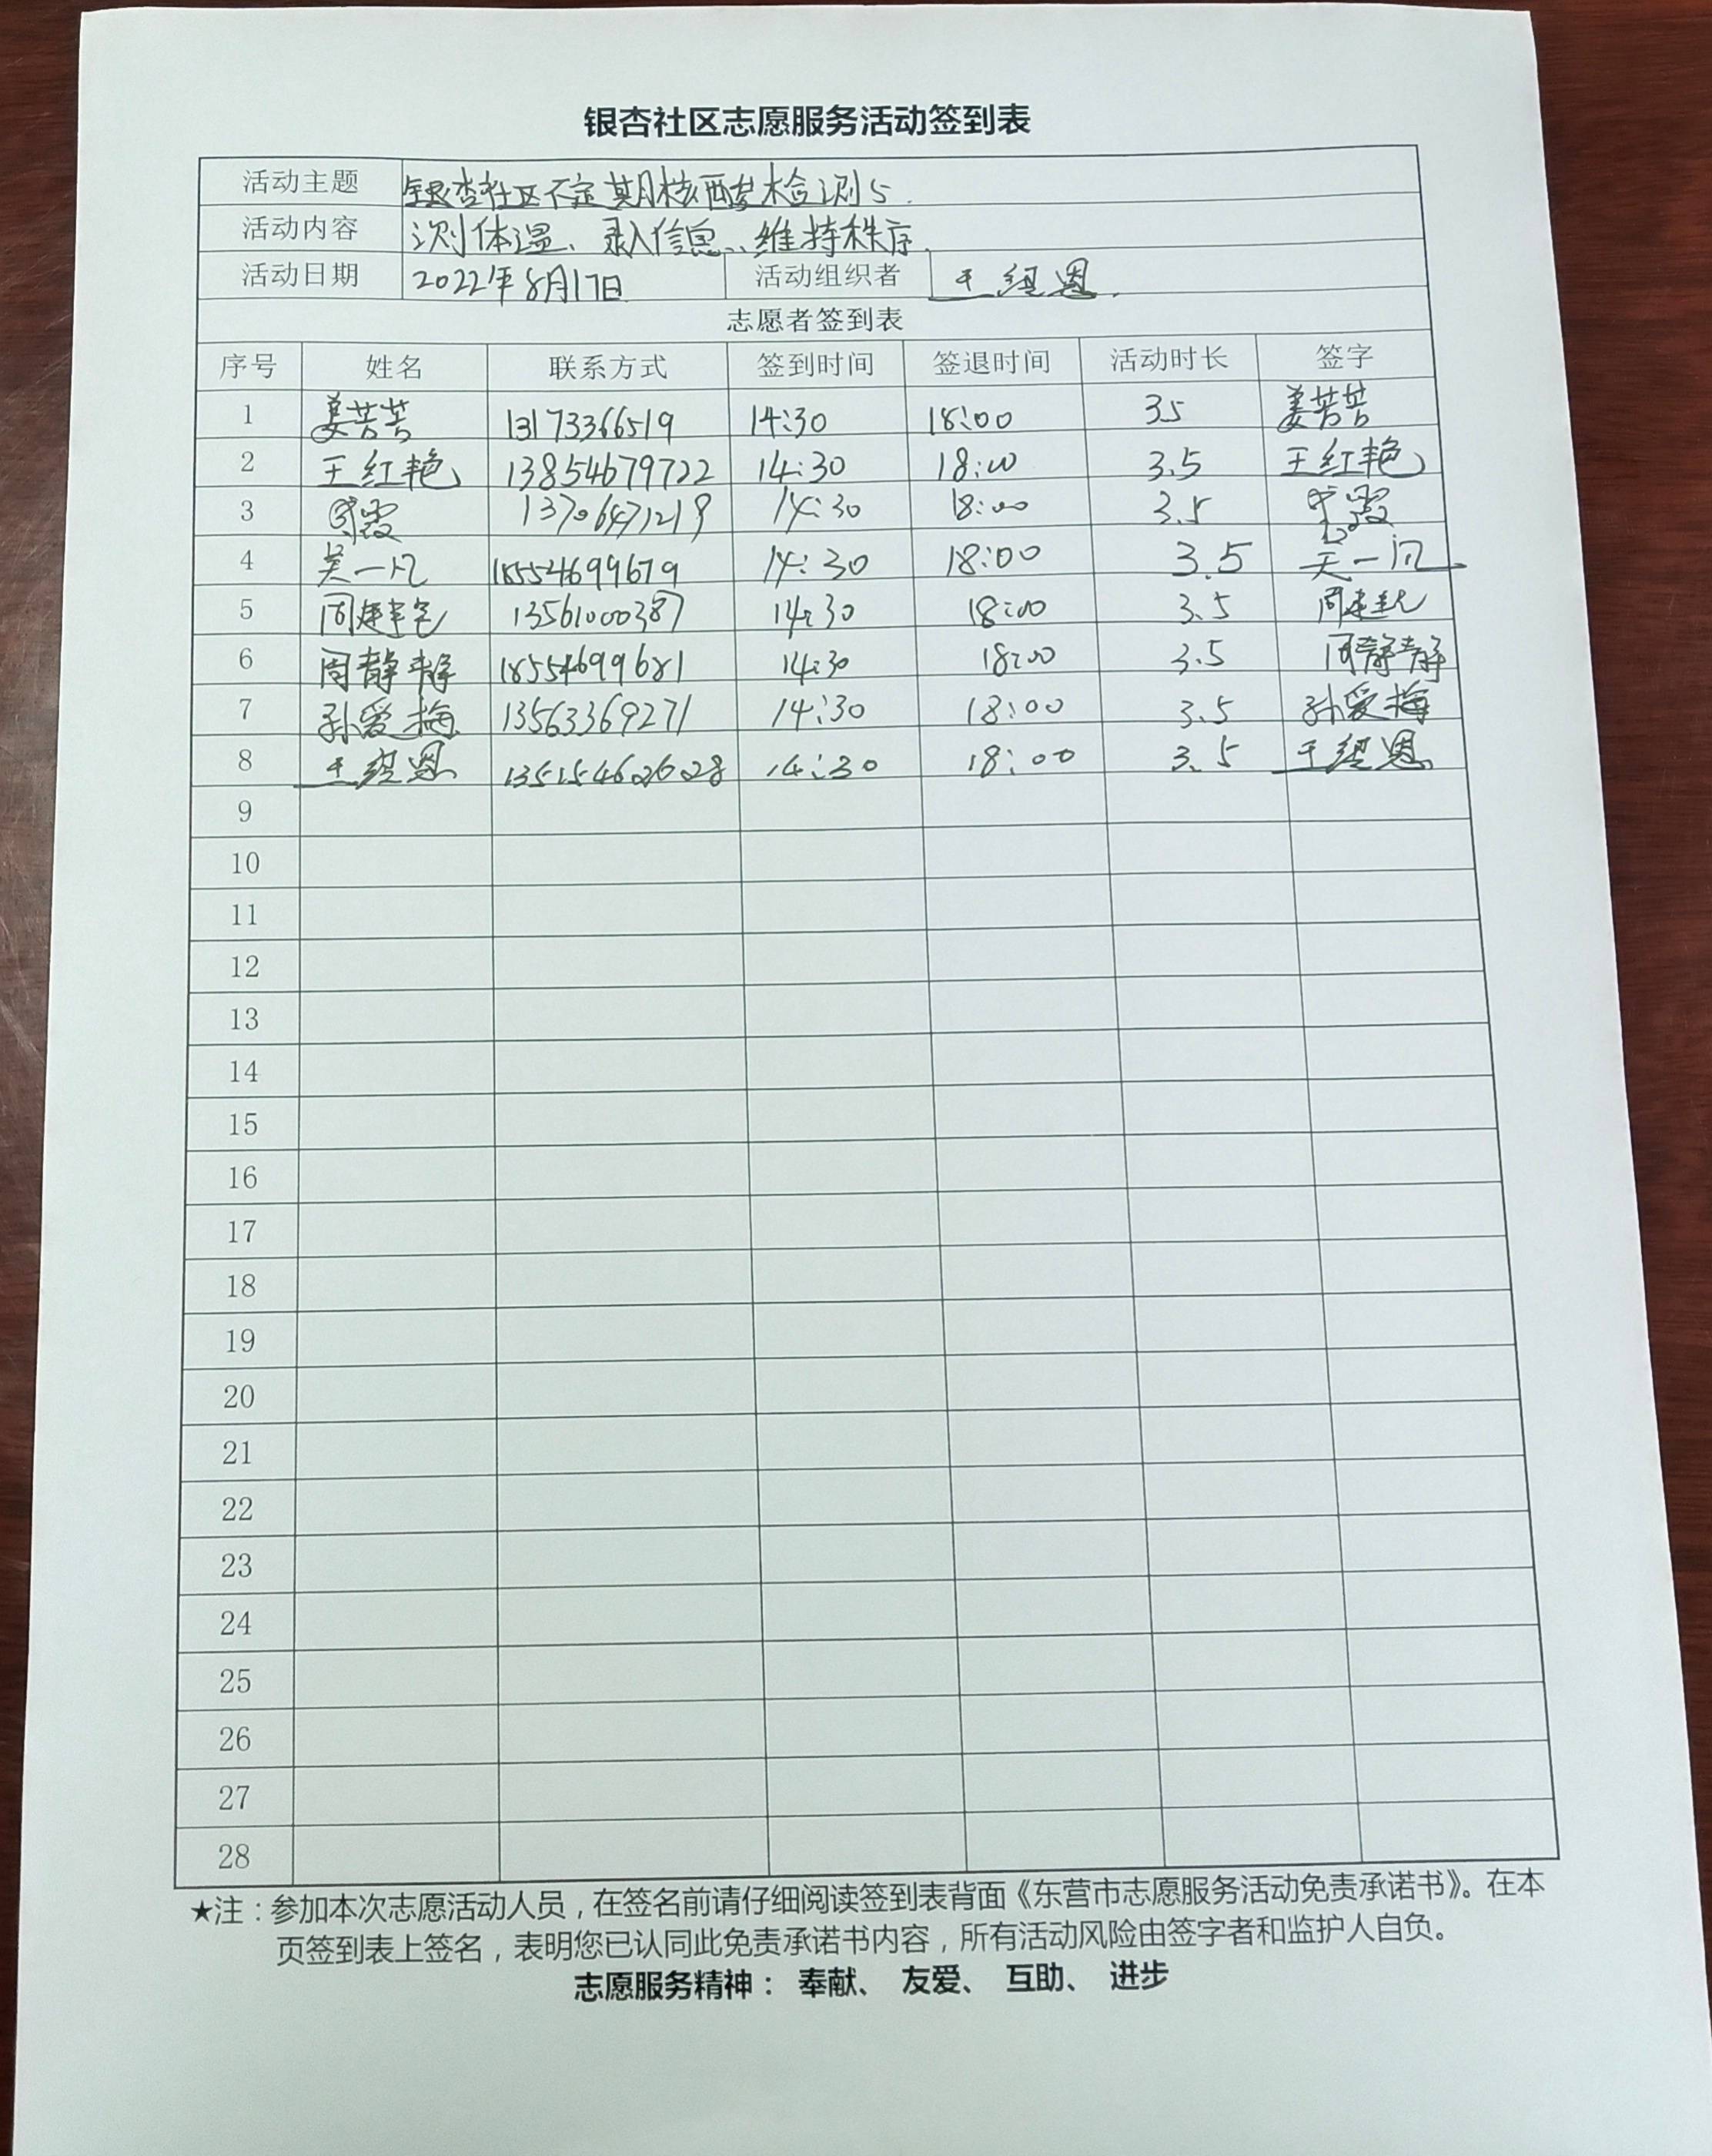 银杏社区志愿服务活动签到表
活动主题 银杏社区不定期核酸检测5.
活动内容 测体温、录入信息、维持秩序.
活动日期 2022年8月17日 活动组织者 王绍恩.
志愿者签到表
序号 姓名 联系方式 签到时间 签退时间 活动时长 签字
1 姜苦苦 13173366519 14:30 18:00 3.5 姜苦苦
2 王红艳 13854679722 14:30 18:00 3.5 王红艳
3 霞 13706471219 14:30 18:00 3.5 霞
4 吴一凡 18554699679 14:30 18:00 3.5 吴一凡
5 周建 13561000387 14:30 18:00 3.5 周建
6 周静静 18554699681 14:30 18:00 3.5 周静静
7 孙爱梅 13563369271 14:30 18:00 3.5 孙爱梅
8 王绍恩 13515462628 14:30 18:00 3.5 王绍恩
9
10
11
12
13
14
15
16
17
18
19
20
21
22
23
24
25
26
27
28
★注：参加本次志愿活动人员，在签名前请仔细阅读签到表背面《东营市志愿服务活动免责承诺书》。在本
页签到表上签名，表明您已认同此免责承诺书内容，所有活动风险由签字者和监护人自负。
志愿服务精神： 奉献、 友爱、 互助、 进步